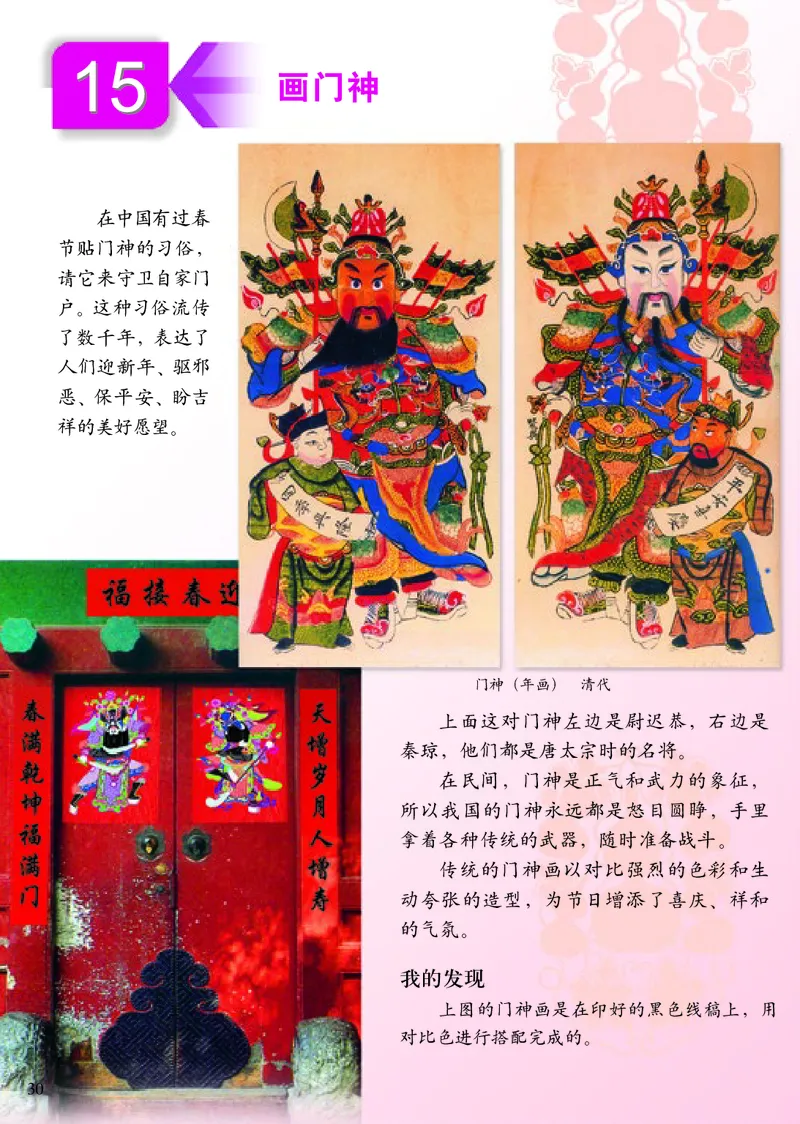 15
画门神
在中国有过春
节贴门神的习俗，
请它来守卫自家门
户。这种习俗流传
了数千年，表达了
人们迎新年、驱邪
恶、保平安、盼吉
祥的美好愿望。
福接春迎
春满乾坤福满门
天增岁月人增寿
门神（年画） 清代
上面这对门神左边是尉迟恭，右边是
秦琼，他们都是唐太宗时的名将。
在民间，门神是正气和武力的象征，
所以我国的门神永远都是怒目圆睁，手里
拿着各种传统的武器，随时准备战斗。
传统的门神画以对比强烈的色彩和生
动夸张的造型，为节日增添了喜庆、祥和
的气氛。
我的发现
上图的门神画是在印好的黑色线稿上，用
对比色进行搭配完成的。
30